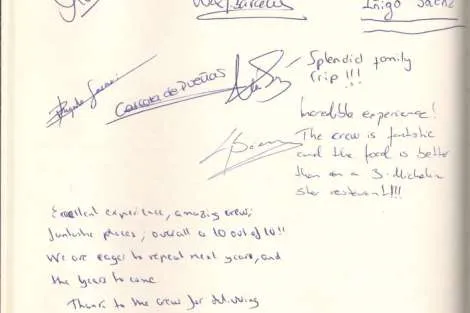 Iñigo Saenz
Splendid family
trip!!!
Carcora de Dueñas
Incredible experience!
The crew is fantastic
and the food is better
than on a 3-Michelin
star restaurant!!!!
Excellent experience, amazing crew,
fantastic places; overall a 10 out of 10!!
We are eager to repeat next years, and
the years to come
Thanks to the crew for delivering